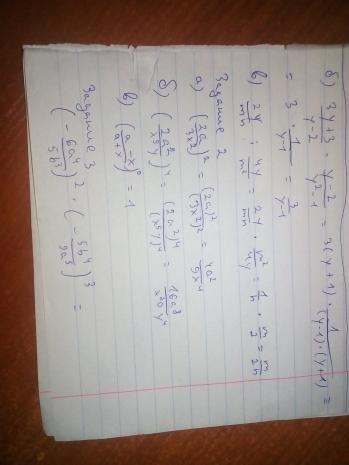 б) (3y+3)/(y-2) · (y-2)/(y²-1) = 3(y+1) · 1/((y-1)·(y+1)) =
= 3 · 1/(y-1) = 3/(y-1)
в) 2y/mn : 4y/m² = 2y/mn · m²/4y = 1/n · m/2 = m/2n
Задание 2
а) (2a/3x²)² = (2a)²/(3x²)² = 4a²/9x⁴
б) (2a²/x⁵y)⁴ = (2a²)⁴/(x⁵y)⁴ = 16a⁸/x²⁰y⁴
в) ((a-x)/(a+x))⁰ = 1
Задание 3
(- 6a⁴/5b³)² · (- 5b⁴/9a³)³ =